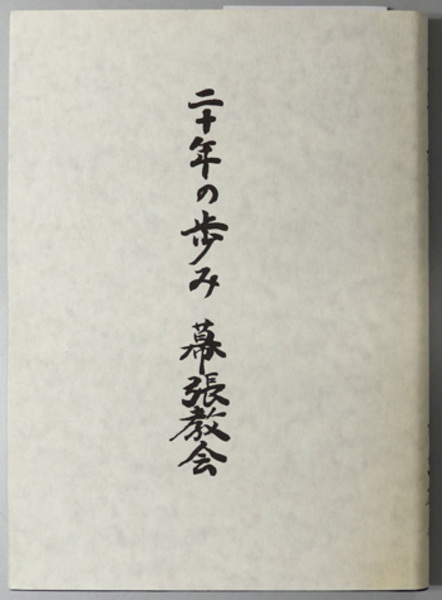 二十年の歩み 幕張教会